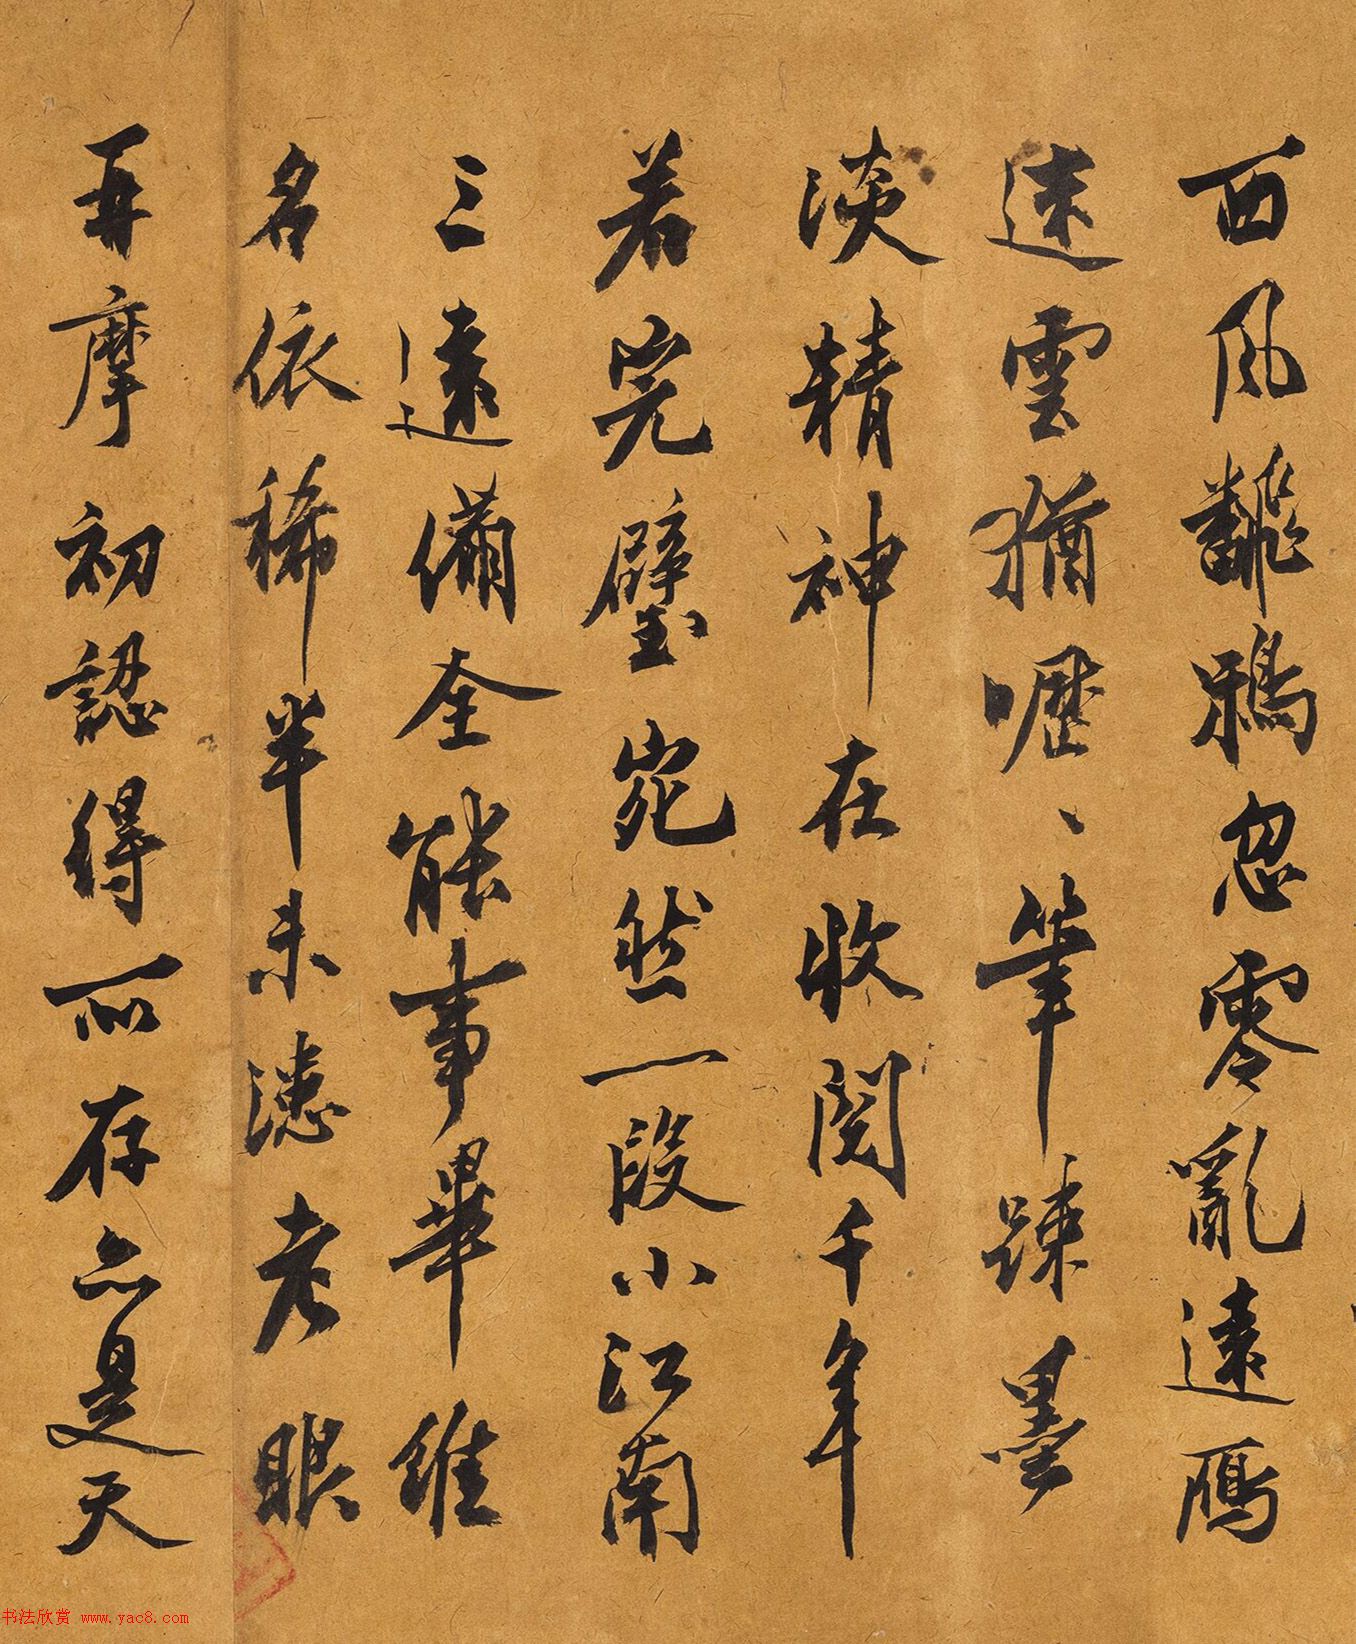 西風翻鴉忽零亂遠鴈
迷雲猶嚦、筆踈墨
淡精神在收閱千年
若完璧宛然一段小江南
三遠備全能事畢維
名依稀半未漶老眼
再摩初認得所存亦是天
书法欣赏 www.yac8.com